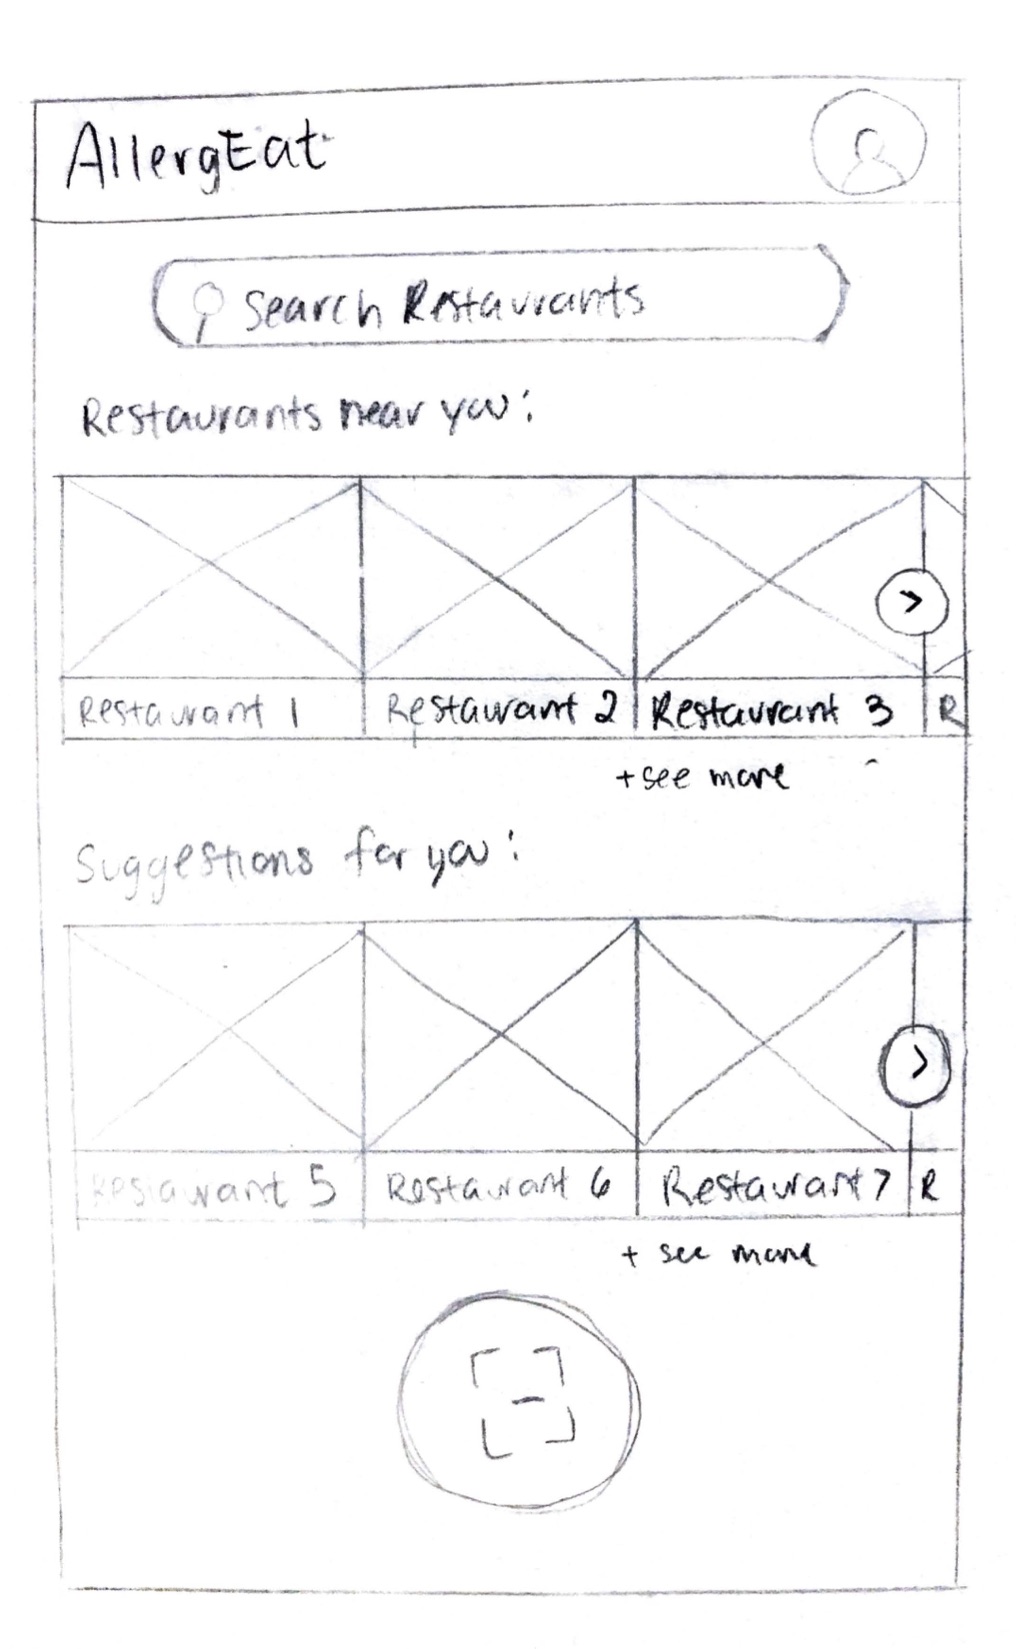 AllergEat
Search Restaurants
Restaurants near you:
>
Restaurant 1 Restaurant 2 Restaurant 3 R
+see more
Suggestions for you:
>
Restaurant 5 Restaurant 6 Restaurant 7 R
+ see more